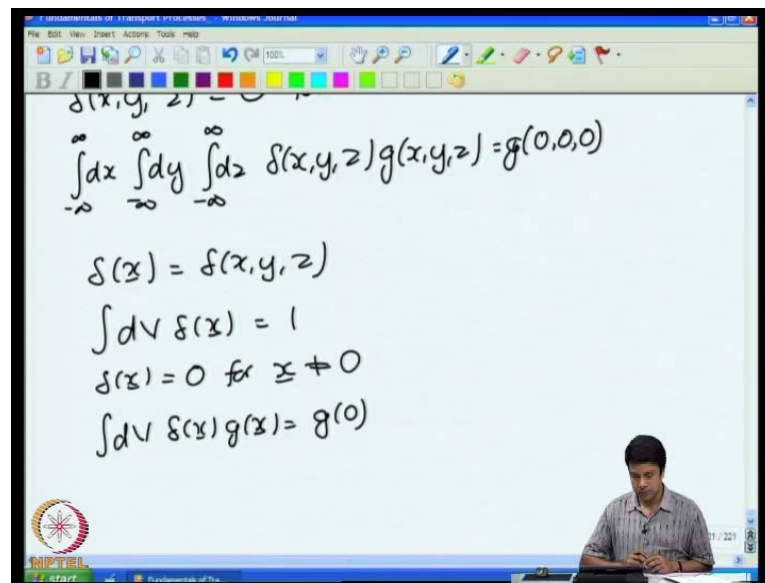 Fundamentals of Transport Processes - Windows Journal
File Edit View Insert Actions Tools Help
100%
B I
δ(x,y,z) = 0
∫_{-∞}^{∞}dx ∫_{-∞}^{∞}dy ∫_{-∞}^{∞}dz δ(x,y,z) g(x,y,z) = g(0,0,0)
δ(x̲) = δ(x,y,z)
∫dV δ(x̲) = 1
δ(x̲) = 0 for x̲ ≠ 0
∫dV δ(x̲) g(x̲) = g(0)
21 / 221
NPTEL
start Fundamentals of Tra...